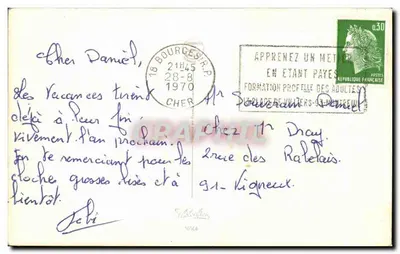 Cher Daniel,
Les vacances tirent
déjà à leur fin
vivement l'an prochain.
En te remerciant pour les
cloches grosses bises et à
bientôt.
18 BOURGES R.P.
21H45
28-8
1970
CHER
APPRENEZ UN METIER
EN ETANT PAYES
FORMATION PROFELLE DES ADULTES
0,30
REPUBLIQUE FRANÇAISE
Mr Souverain Daniel
chez Mr Dray
2 rue des Rabelais
91 - Vigneux